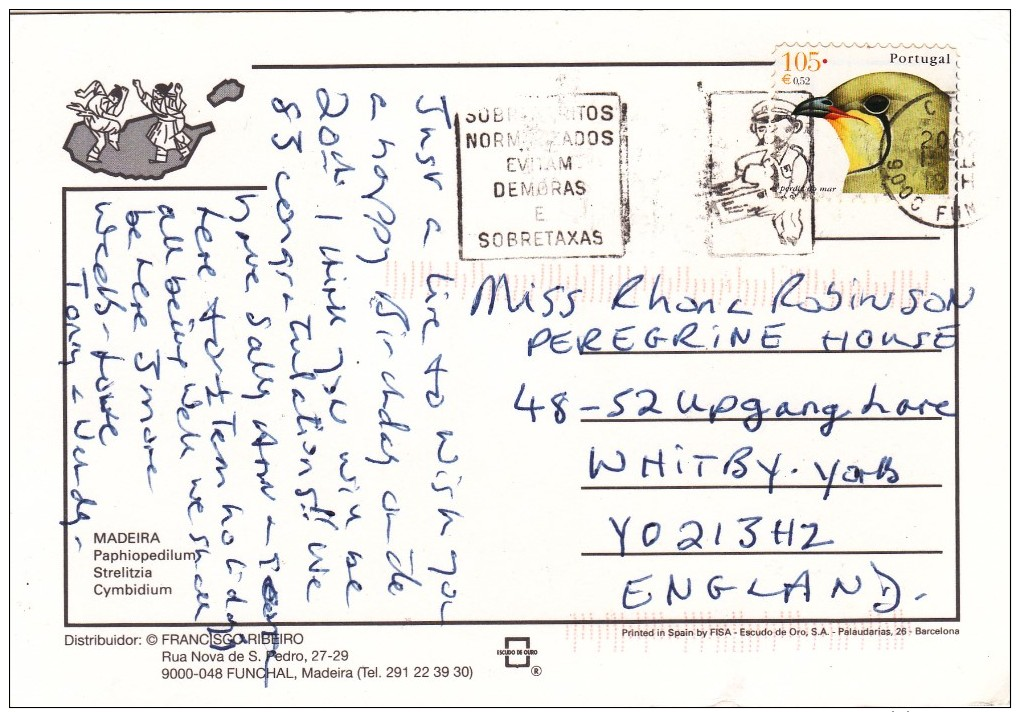 105
€ 0,52
Portugal
perdiz do mar
NORM ZADOS
EVITAM
DEMORAS
E
SOBRETAXAS
9000 FUN
Just a line to wish you
a happy Birthday on the
20th I think you will be
83 congratulations!! We
have Sally Ann +
here for ten holiday
all being well we shall
be here 5 more
weeks - love
Tony & Wendy -
Miss Rhona Robinson
PEREGRINE HOUSE
48-52 Upgang Lane
WHITBY. Yorks
YO21 3HZ
ENGLAND.
MADEIRA
Paphiopedilum
Strelitzia
Cymbidium
Distribuidor: © FRANCISCO RIBEIRO
Rua Nova de S. Pedro, 27-29
9000-048 FUNCHAL, Madeira (Tel. 291 22 39 30)
ESCUDO DE OURO
®
Printed in Spain by FISA - Escudo de Oro, S.A. - Palaudarias, 26 - Barcelona